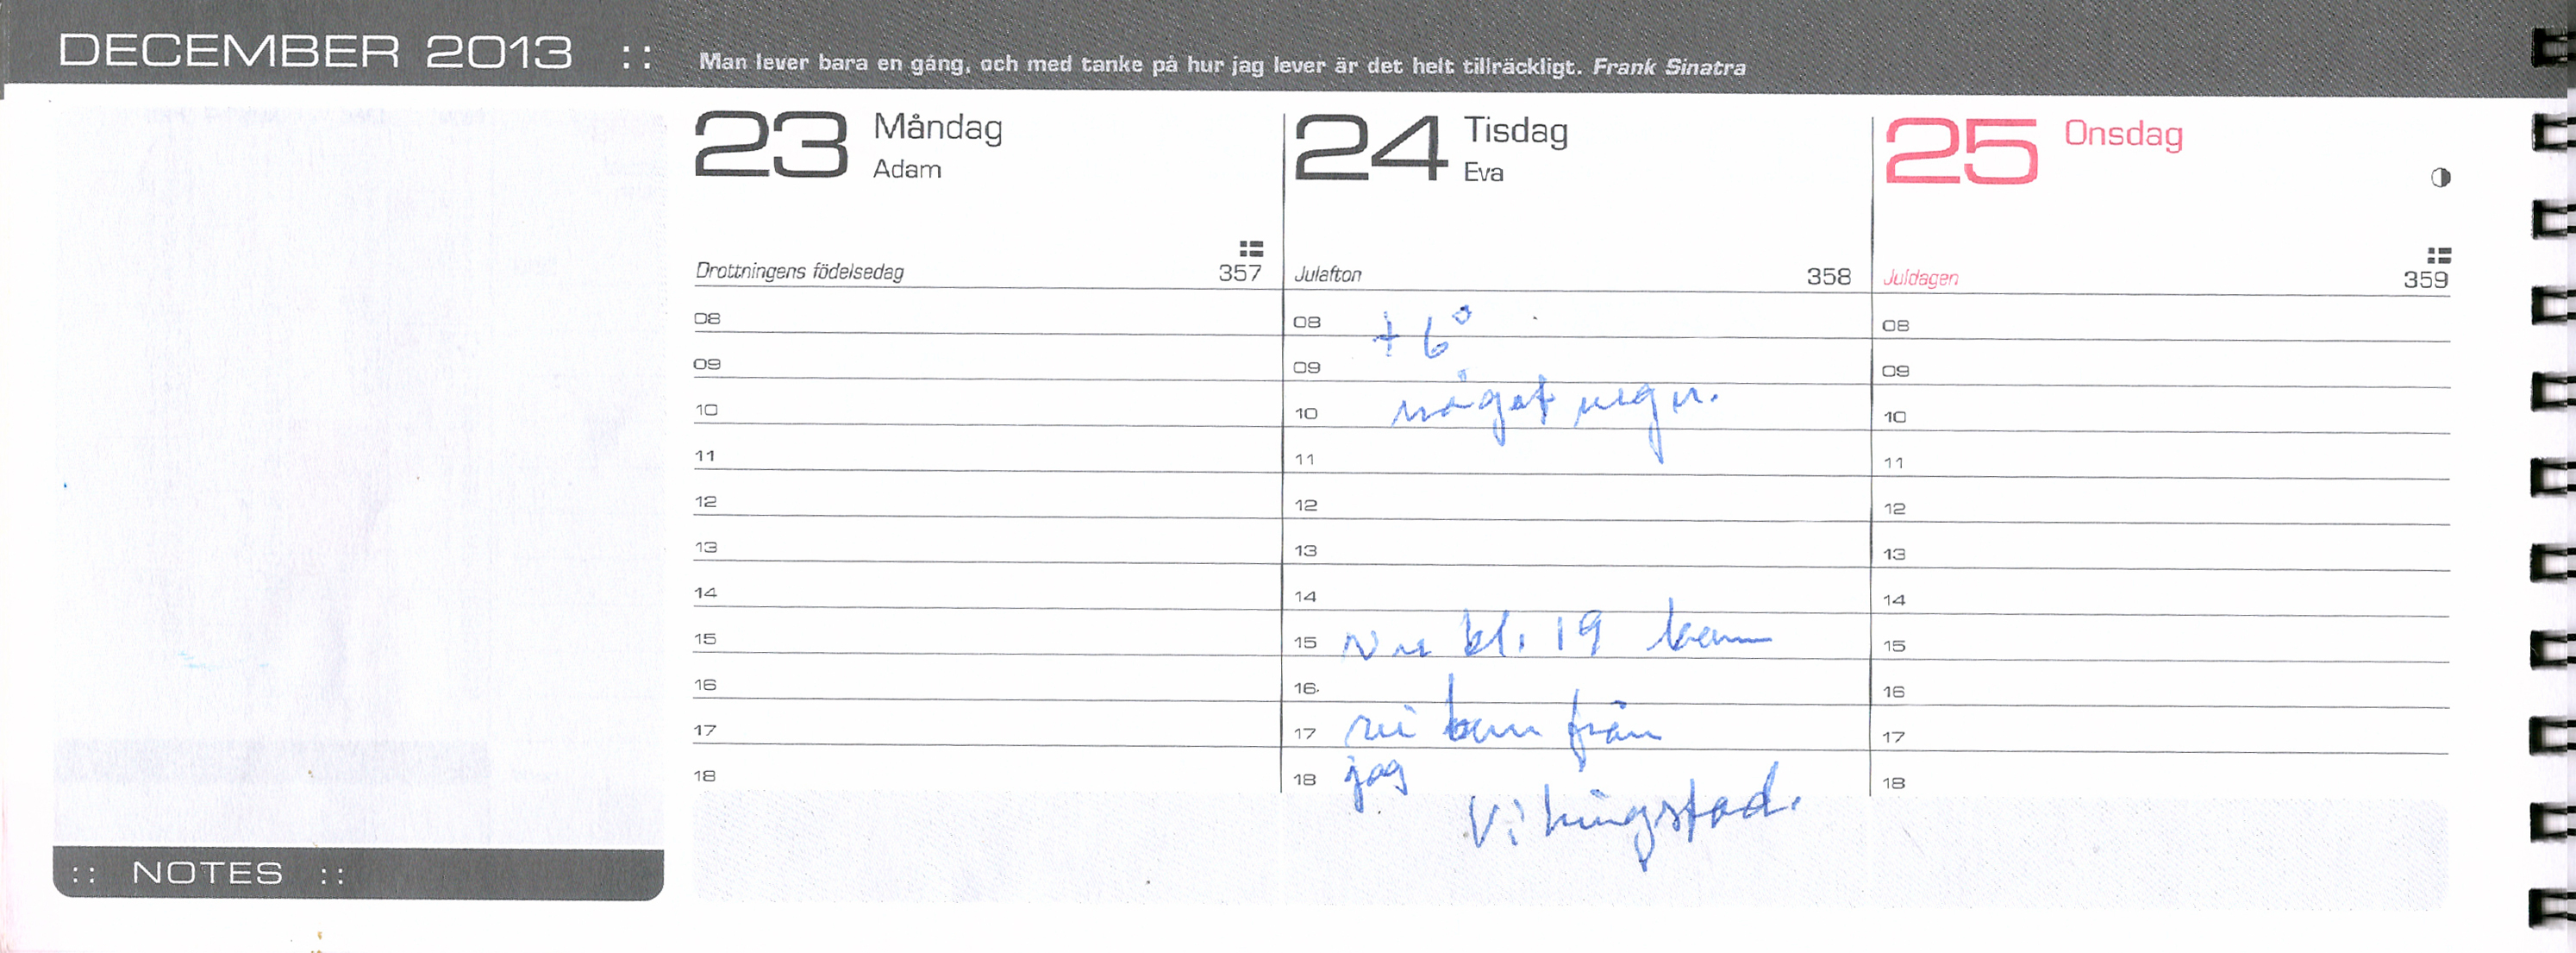 DECEMBER 2013 :: Man lever bara en gång, och med tanke på hur jag lever är det helt tillräckligt. Frank Sinatra
23 Måndag
Adam
Drottningens födelsedag 357
08
09
10
11
12
13
14
15
16
17
18
24 Tisdag
Eva
Julafton 358
08 + 6°
09
10 något regn.
11
12
13
14
15 kl. 19 kom
16
17 vi kom från
18 jag
Vikingstad.
25 Onsdag
Juldagen 359
08
09
10
11
12
13
14
15
16
17
18
:: NOTES ::